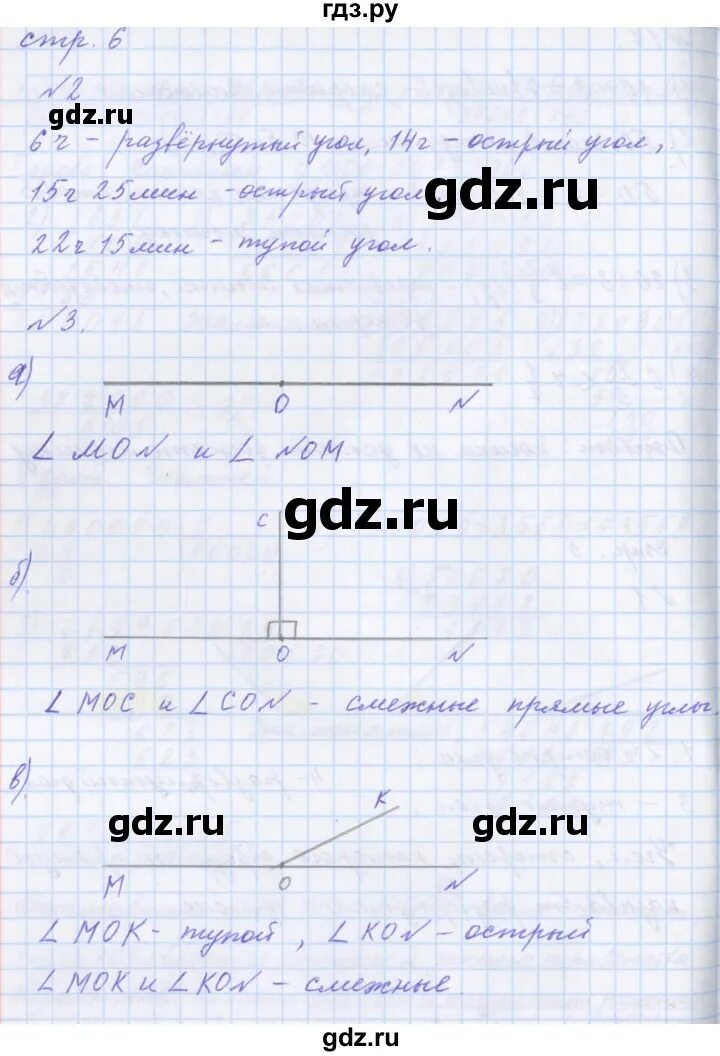 гдз.ру
стр. 6
№2
gdz.ru
6ч - развёрнутый угол, 14ч - острый угол,
15ч 25мин - острый угол
gdz.ru
22ч 15мин - тупой угол.
№3.
а)
M O N
∠ MON и ∠ NOM
gdz.ru
C
б).
M O N
∠ MOC и ∠ CON - смежные прямые углы.
в).
K
gdz.ru
gdz.ru
M O N
∠ MOK - тупой, ∠ KON - острый
∠ MOK и ∠ KON - смежные.
gdz.ru